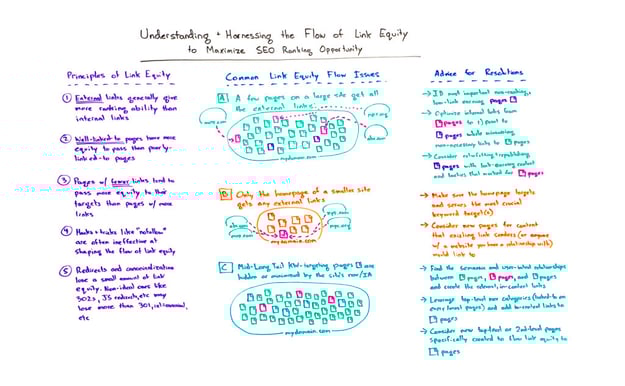 Understanding + Harnessing the Flow of Link Equity
to Maximize SEO Ranking Opportunity
Principles of Link Equity
1 External links generally give
more ranking ability than
internal links
2 Well-linked-to pages have more
equity to pass than poorly-
linked-to pages
3 Pages w/ fewer links tend to
pass more equity to their
targets than pages w/ more
links
4 Hacks + tricks like "nofollow"
are often ineffective at
shaping the flow of link equity
5 Redirects and canonicalization
lose a small amount of link
equity. Non-ideal ones like
302s, JS redirects, etc may
lose more than 301, rel=canonical,
etc
Common Link Equity Flow Issues
A A few pages on a large site get all
the external links
npr.org
mydomain.com
B Only the homepage of a smaller site
gets any external links
mydomain.com
C Mid-Long Tail KW-targeting pages are
hidden or minimized by the site's nav/IA
mydomain.com
Advice for Resolutions
→ ID most important non-ranking,
low-link earning pages
→ Optimize internal links from
pages to point to
pages while minimizing
non-necessary links to pages
→ Consider retrofitting + republishing
pages with link-earning content
and tactics that worked for pages
→ Make sure the homepage targets
and serves the most crucial
keyword target(s)
→ Consider new pages for content
that existing link senders (or anyone
w/ a website you have a relationship with)
would link to
→ Find the semantic and user-intent relationships
between pages, pages, and pages
and create the relevant, in-content links
→ Leverage top-level nav categories (linked-to on
every/most pages) and add in-content links to
pages
→ Consider new top-level or 2nd-level pages
specifically created to flow link equity to
pages